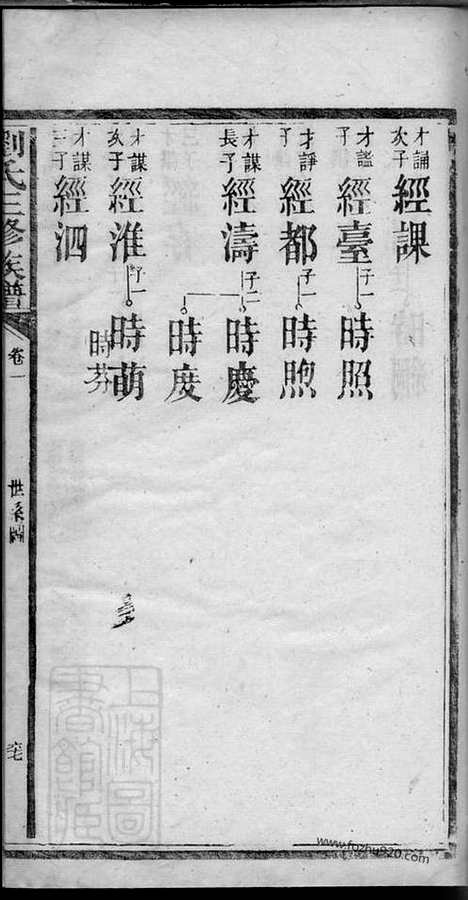 才誦次子 經課
才謐子 經臺 子一 時照
才諍子 經都 子一 時煦
才謀長子 經濤 子二 時慶
時度
才謀次子 經淮 子一 時萌
時芬
才謀三子 經泗
劉氏三修族譜 卷一 世系圖
上海圖書館藏
www.fozhu920.com